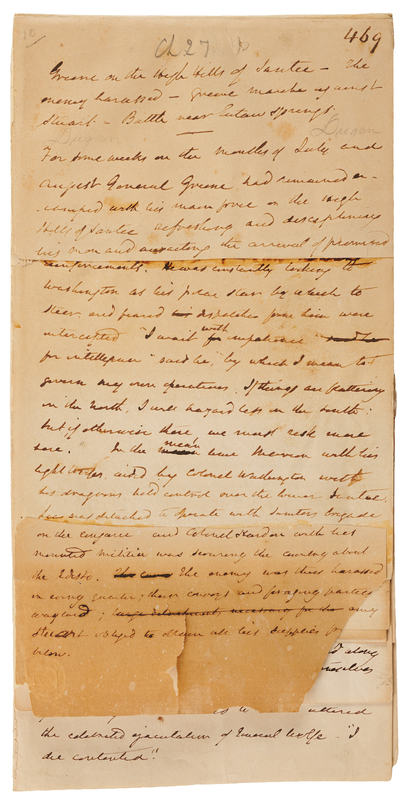 469
Ch 27
Greene on the High Hills of Santee – The
enemy harassed – Greene marches against
Stuart – Battle near Eutaw Springs.
Dugan
For some weeks in the months of July and
August General Greene had remained en-
camped with his main force on the High
Hills of Santee refreshing and disciplining
his men and awaiting the arrival of promised
reinforcements. He was constantly looking to
Washington as his polar star by which to
steer, and feared his dispatches from him were
intercepted "I wait with for impatience
for intelligence" said he, "by which I mean to
govern my own operations. If things are flattering
in the North, I will hazard less in the South;
but if otherwise there, we must risk more
here. In the mean time Marion with his
light troops, aided by Colonel Washington with
his dragoons held control over the lower Santee.
Lee was detached to operate with Sumters brigade
on the Congaree and Colonel Harden with his
mounted militia was scouring the country about
the Edisto. The enemy The enemy was thus harassed
in every quarter; their convoys and foraging parties
waylaid; large detachments necessary for the and
Stuart obliged to obtain all his supplies from
below.
along
themselves
uttered
the celebrated ejaculation of General Wolfe – "I
die contented".